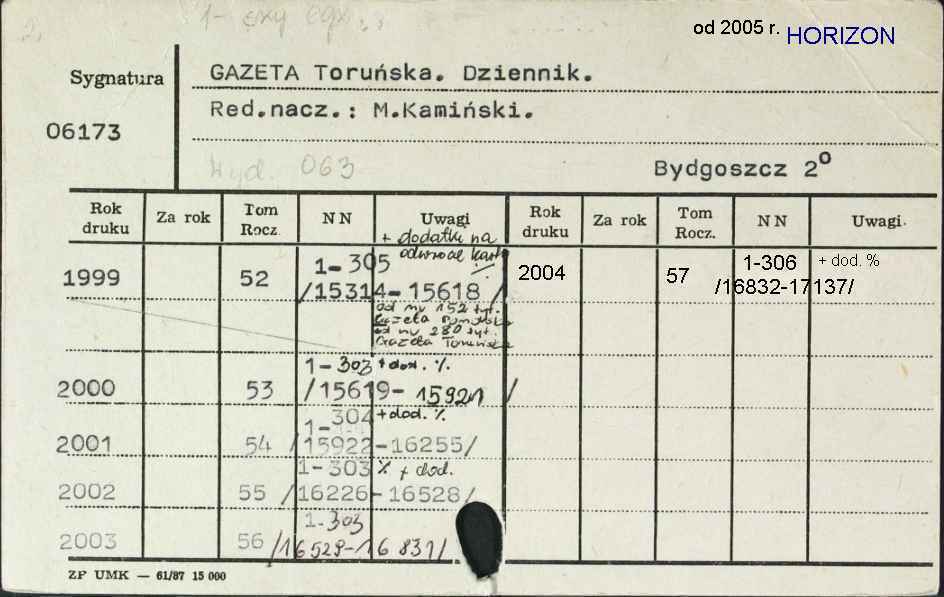 2. 1- egz egz.
od 2005 r. HORIZON
Sygnatura
06173
GAZETA Toruńska. Dziennik.
Red.nacz.: M.Kamiński.
Wyd. 063
Bydgoszcz 2º
Rok druku Za rok Tom Rocz. NN Uwagi Rok druku Za rok Tom Rocz. NN Uwagi.
+ dodatki na
odwrocie karty
1999 52 1-305 ./.
/15314-15618/
od nr 152 tyt.
Gazeta Pomorska
od nr 280 tyt.
Gazeta Toruńska
2004 57 1-306 + dod. %
/16832-17137/
2000 53 1-303 + dod. %
/15619-15921/
2001 54 1-304 + dod. %
/15922-16255/
2002 55 1-303 % + dod.
/16226-16528/
2003 56 1-303
/16529-16831/
ZP UMK — 61/87 15 000